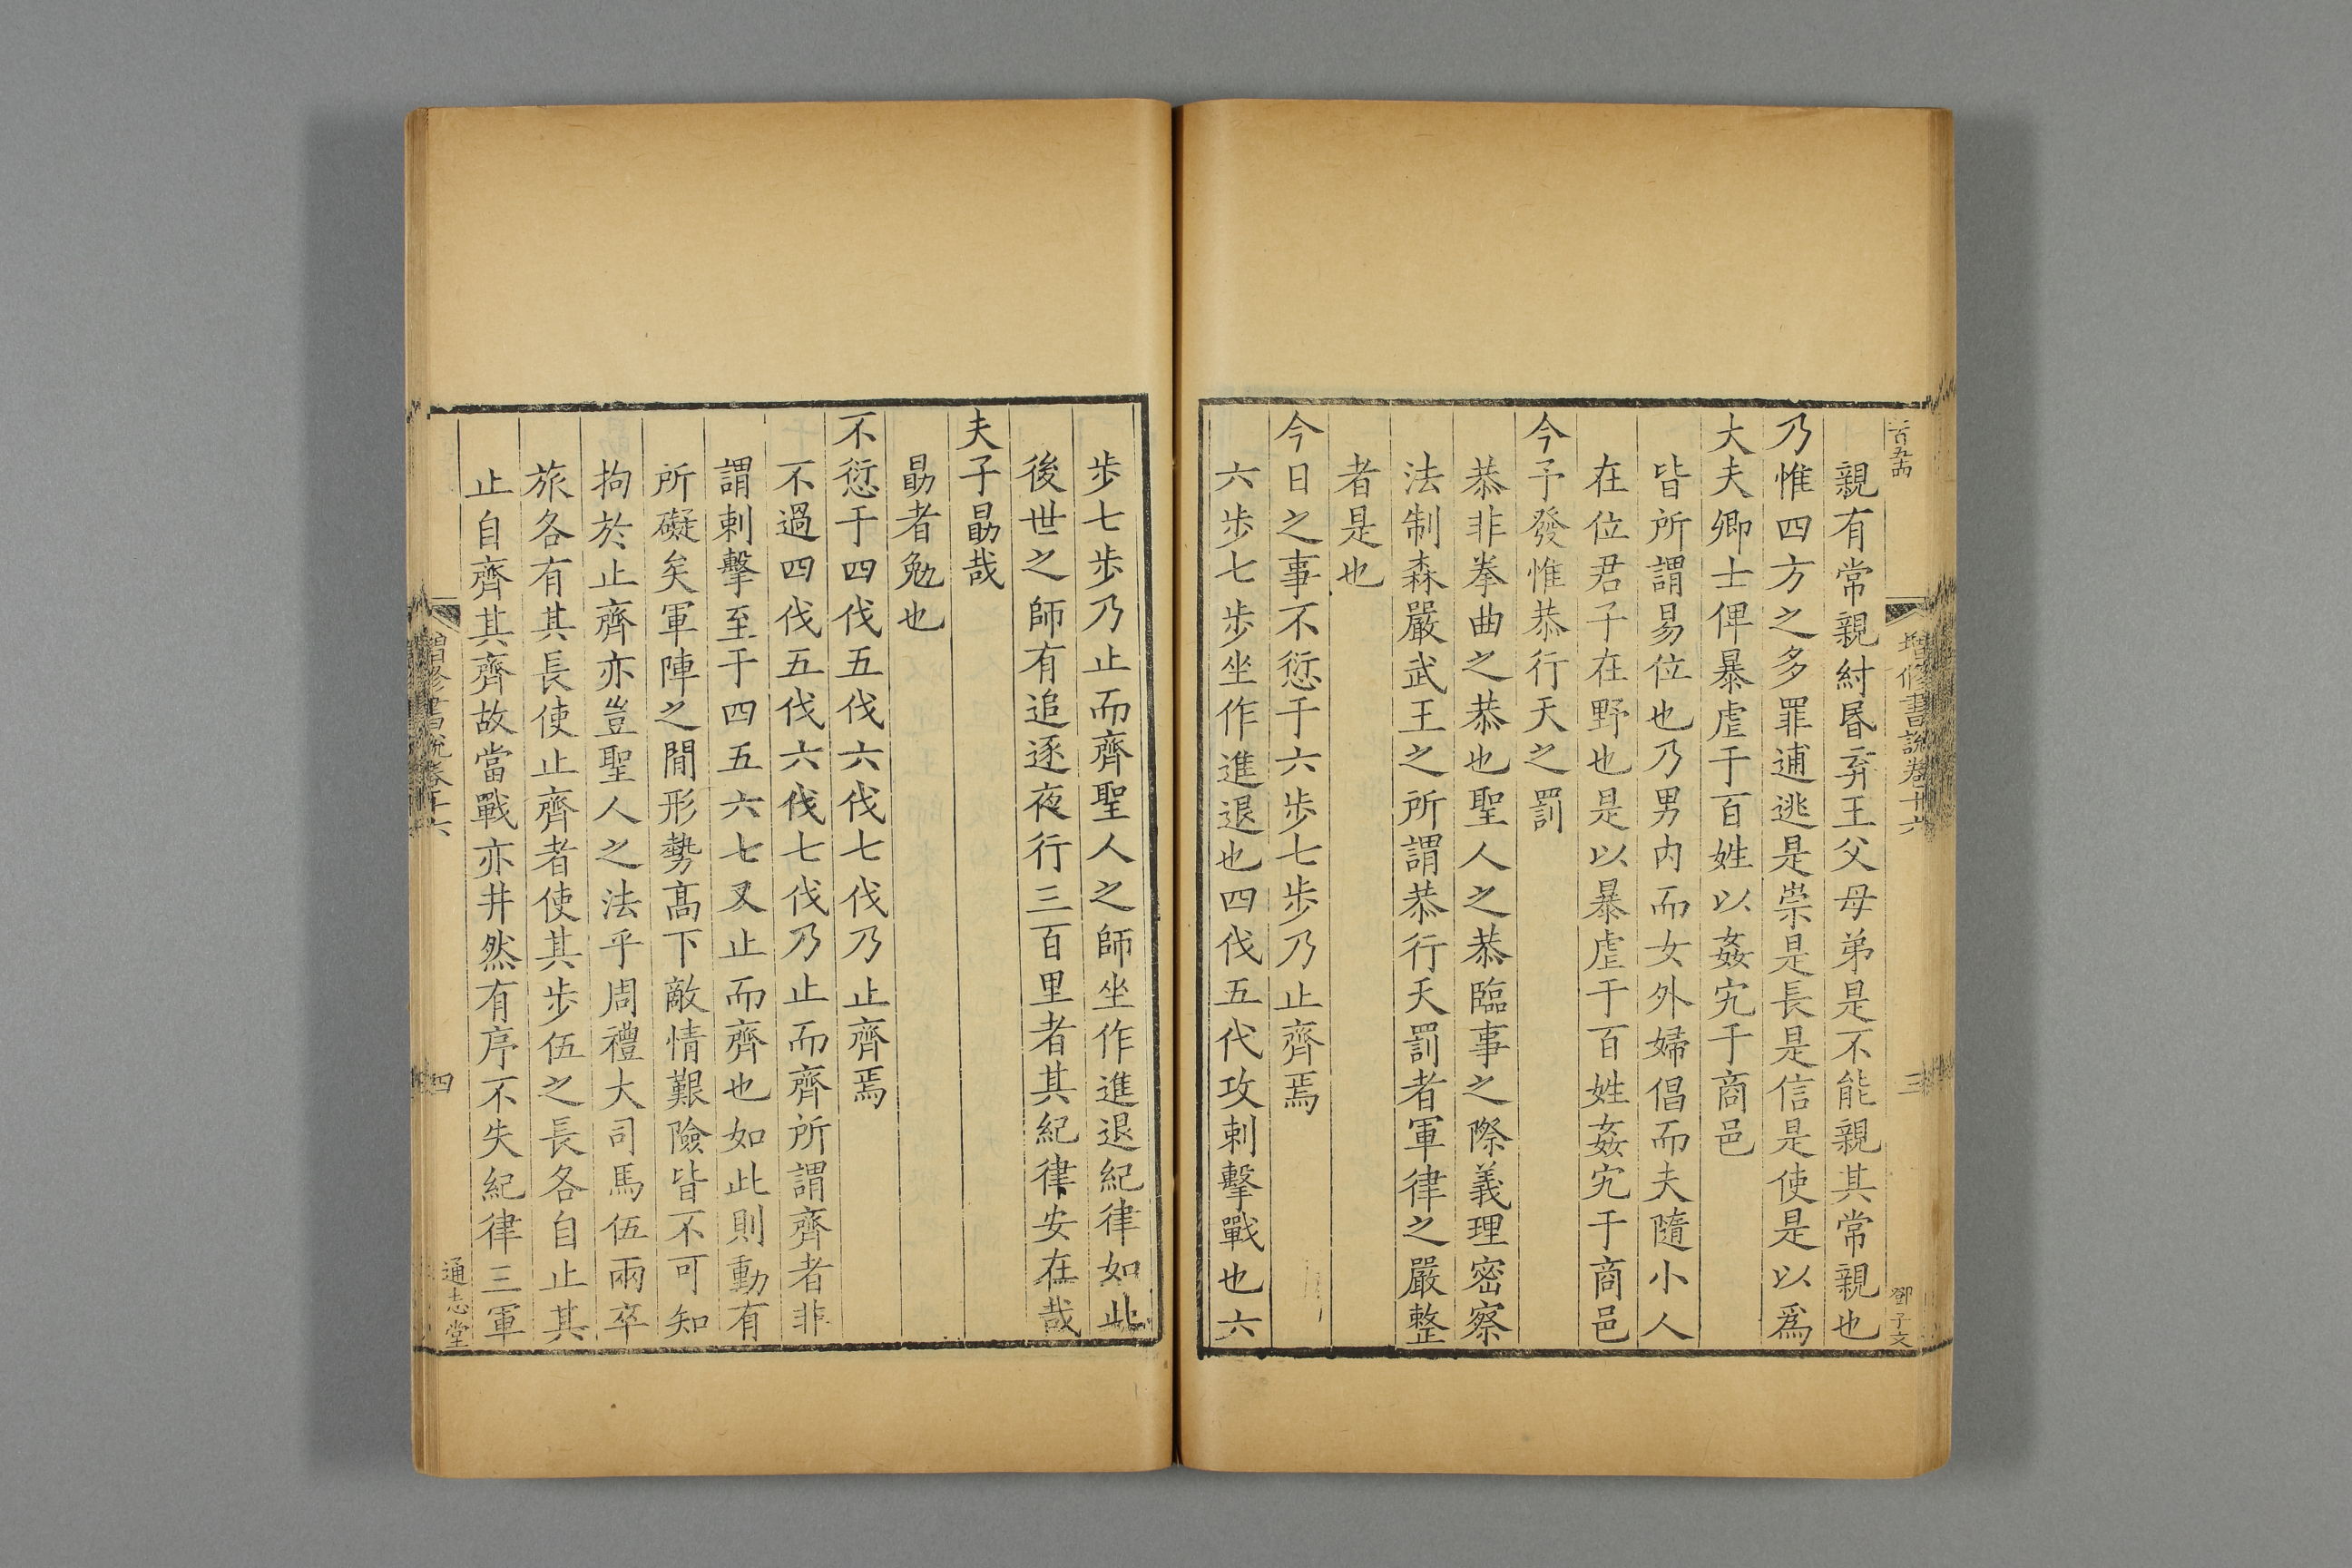 增修書說卷十六
三
鄧子文
親有常親紂昬弃王父母弟是不能親其常親也
乃惟四方之多罪逋逃是崇是長是信是使是以爲
大夫卿士俾暴虐于百姓以姦宄于商邑
皆所謂易位也乃男内而女外婦倡而夫隨小人
在位君子在野也是以暴虐于百姓姦宄于商邑
今予發惟恭行天之罰
恭非拳曲之恭也聖人之恭臨事之際義理密察
法制森嚴武王之所謂恭行天罰者軍律之嚴整
者是也
今日之事不愆于六步七步乃止齊焉
六步七步坐作進退也四伐五代攻刺擊戰也六
步七步乃止而齊聖人之師坐作進退紀律如此
後世之師有追逐夜行三百里者其紀律安在哉
夫子勗哉
勗者勉也
不愆于四伐五伐六伐七伐乃止齊焉
不過四伐五伐六伐七伐乃止而齊所謂齊者非
謂刺擊至于四五六七又止而齊也如此則動有
所礙矣軍陣之閒形勢髙下敵情艱險皆不可知
拘於止齊亦豈聖人之法乎周禮大司馬伍兩卒
旅各有其長使止齊者使其步伍之長各自止其
止自齊其齊故當戰亦井然有序不失紀律三軍
增修書說卷十六
四
通志堂